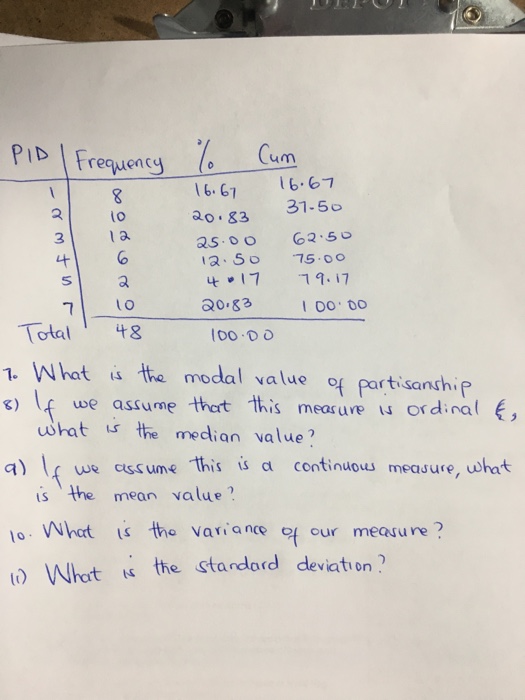 DEPOT
PID Frequency % Cum
1 8 16.67 16.67
2 10 20.83 37.50
3 12 25.00 62.50
4 6 12.50 75.00
5 2 4.17 79.17
7 10 20.83 100.00
Total 48 100.00
7. What is the modal value of partisanship
8) If we assume that this measure is ordinal &,
what is the median value?
9) If we assume this is a continuous measure, what
is the mean value?
10. What is the variance of our measure?
11) What is the standard deviation?